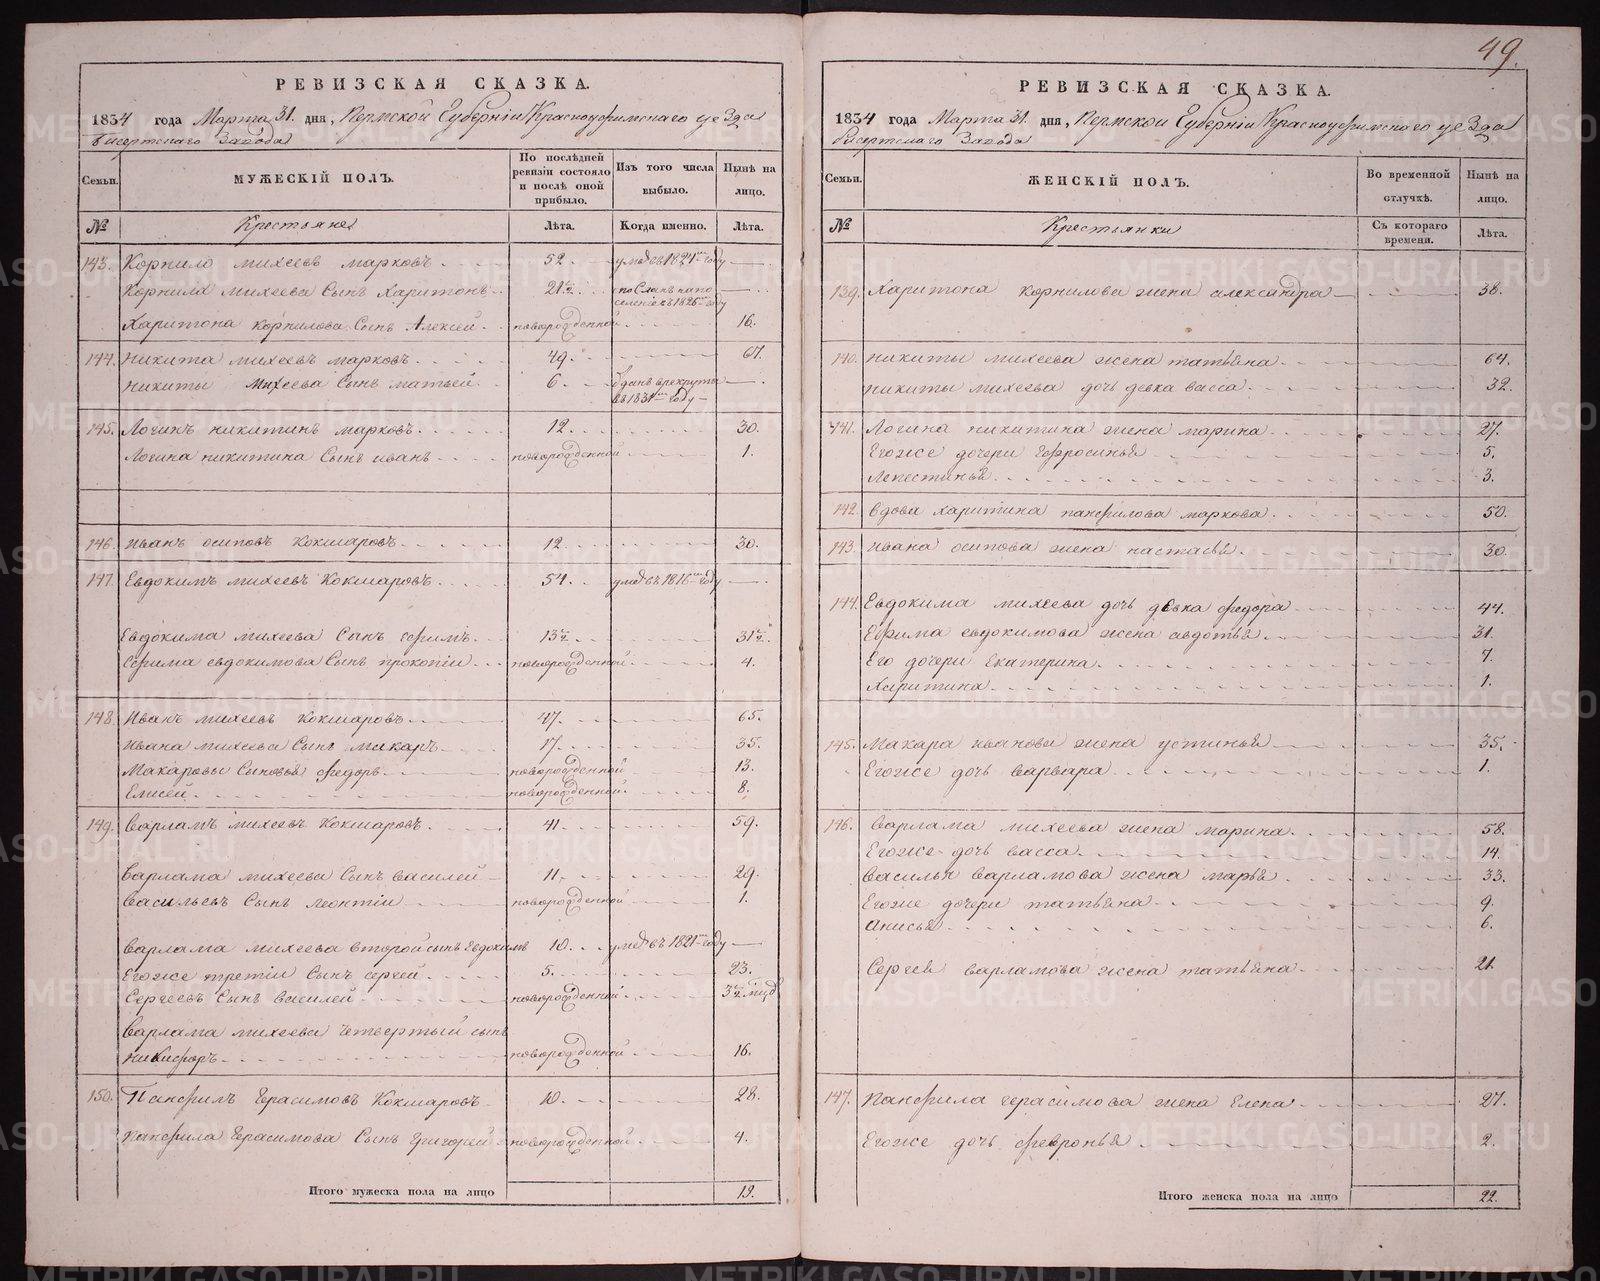 49.
РЕВИЗСКАЯ СКАЗКА.
1834 года Марта 31. дня, Пермской Губерніи Красноуфимского уезда
Бисертскаго Завода
Семьи.
МУЖЕСКІЙ ПОЛЪ.
По послѣдней ревизіи состояло и послѣ оной прибыло.
Изъ того числа выбыло.
Нынѣ на лицо.
№
Крестьяне
Лѣта.
Когда именно.
Лѣта.
143. Корнило михеевъ марковъ 52. умре въ 1821м году
Корнила михеева Сынъ Харитонъ 21½ посланъ на поселеніе въ 1826м году
Харитона корнилова Сынъ Алексей новорожденной 16.
144. никита михеевъ марковъ 49. 67.
никиты михеева Сынъ матвей 6. отданъ в рекруты
въ 1831м году
145. Логинъ никитинъ марковъ 12. 30.
Логина никитина Сынъ иванъ новорожденной 1.
146. иванъ осиповъ Кокшаровъ 12. 30.
147. Евдокимъ михеевъ Кокшаровъ 54. умре въ 1816м году
Евдокима михеева Сынъ ефимъ 13½ 31½
Ефима евдокимова Сынъ прокопіи новорожденной 4.
148. Иванъ михеевъ Кокшаровъ 47. 65.
Ивана михеева Сынъ макаръ 17. 35.
Макаровы Сыновья федоръ новорожденной 13.
Елисей новорожденной 8.
149. Варламъ михеевъ Кокшаровъ 41. 59.
Варлама михеева Сынъ василей 11. 29.
Васильевъ Сынъ леонтіи новорожденной 1.
варлама михеева второй сынъ Евдокимъ 10. умре въ 1821м году
Егоже третіи Сынъ сергей 5. 23.
Сергеевъ Сынъ василей новорожденной 3½ мцд
варлама михеева четвертый сынъ
никифоръ новорожденной 16.
150. Панфилъ Герасимовъ Кокшаровъ 10. 28.
Панфила Герасимова Сынъ Григорей новорожденной 4.
Итого мужеска пола на лицо 19.
РЕВИЗСКАЯ СКАЗКА.
1834 года Марта 31. дня, Пермской Губерніи Красноуфимского уезда
Бисертскаго Завода
Семьи.
ЖЕНСКІЙ ПОЛЪ.
Во временной отлучкѣ.
Нынѣ на лицо.
№
Крестьянки
Съ котораго времени.
Лѣта.
139. Харитона корнилова жена александра 38.
140. никиты михеева жена татьяна 64.
никиты михеева дочь девка васса 32.
141. Логина никитина жена марина 27.
Егоже дочери Ефросинья 5.
Лепестинья 3.
142. вдова харитина панфилова маркова 50.
143. ивана осипова жена настасья 30.
144. Евдокима михеева дочь девка федора 44.
Ефима евдокимова жена авдотья 31.
Его дочери Екатерина 7.
Харитина 1.
145. Макара иванова жена устинья 35.
Егоже дочь варвара 1.
146. Варлама михеева жена марина 58.
Егоже дочь васса 14.
василья варламова жена марья 33.
Егоже дочери татьяна 9.
анисья 6.
Сергея варламова жена татьяна 21.
147. Панфила герасимова жена Елена 27.
Егоже дочь февронья 2.
Итого женска пола на лицо 22.
METRIKI.GASO-URAL.RU